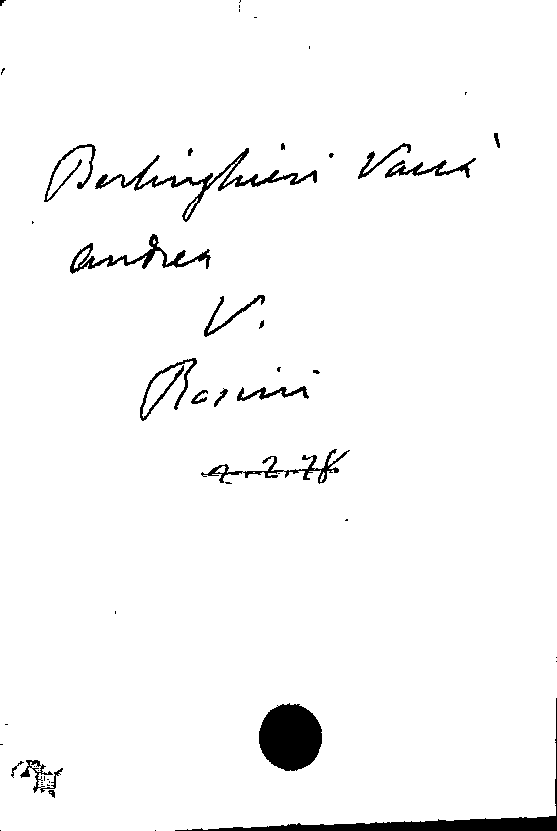 Berlinghieri Vaccà
Andrea
V.
Rosini
2.2.78